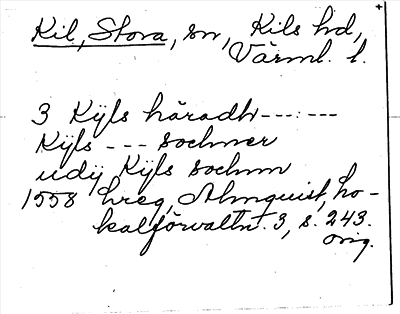 Kil, Stora, sn, Kils hd,
Värml. l.
3 Kÿls häradh --- : ---
Kÿls --- sochner
udÿ Kÿls sochnn
1558 hreg, Almquist, Lo-
kalförvaltn. 3, s. 243.
orig.